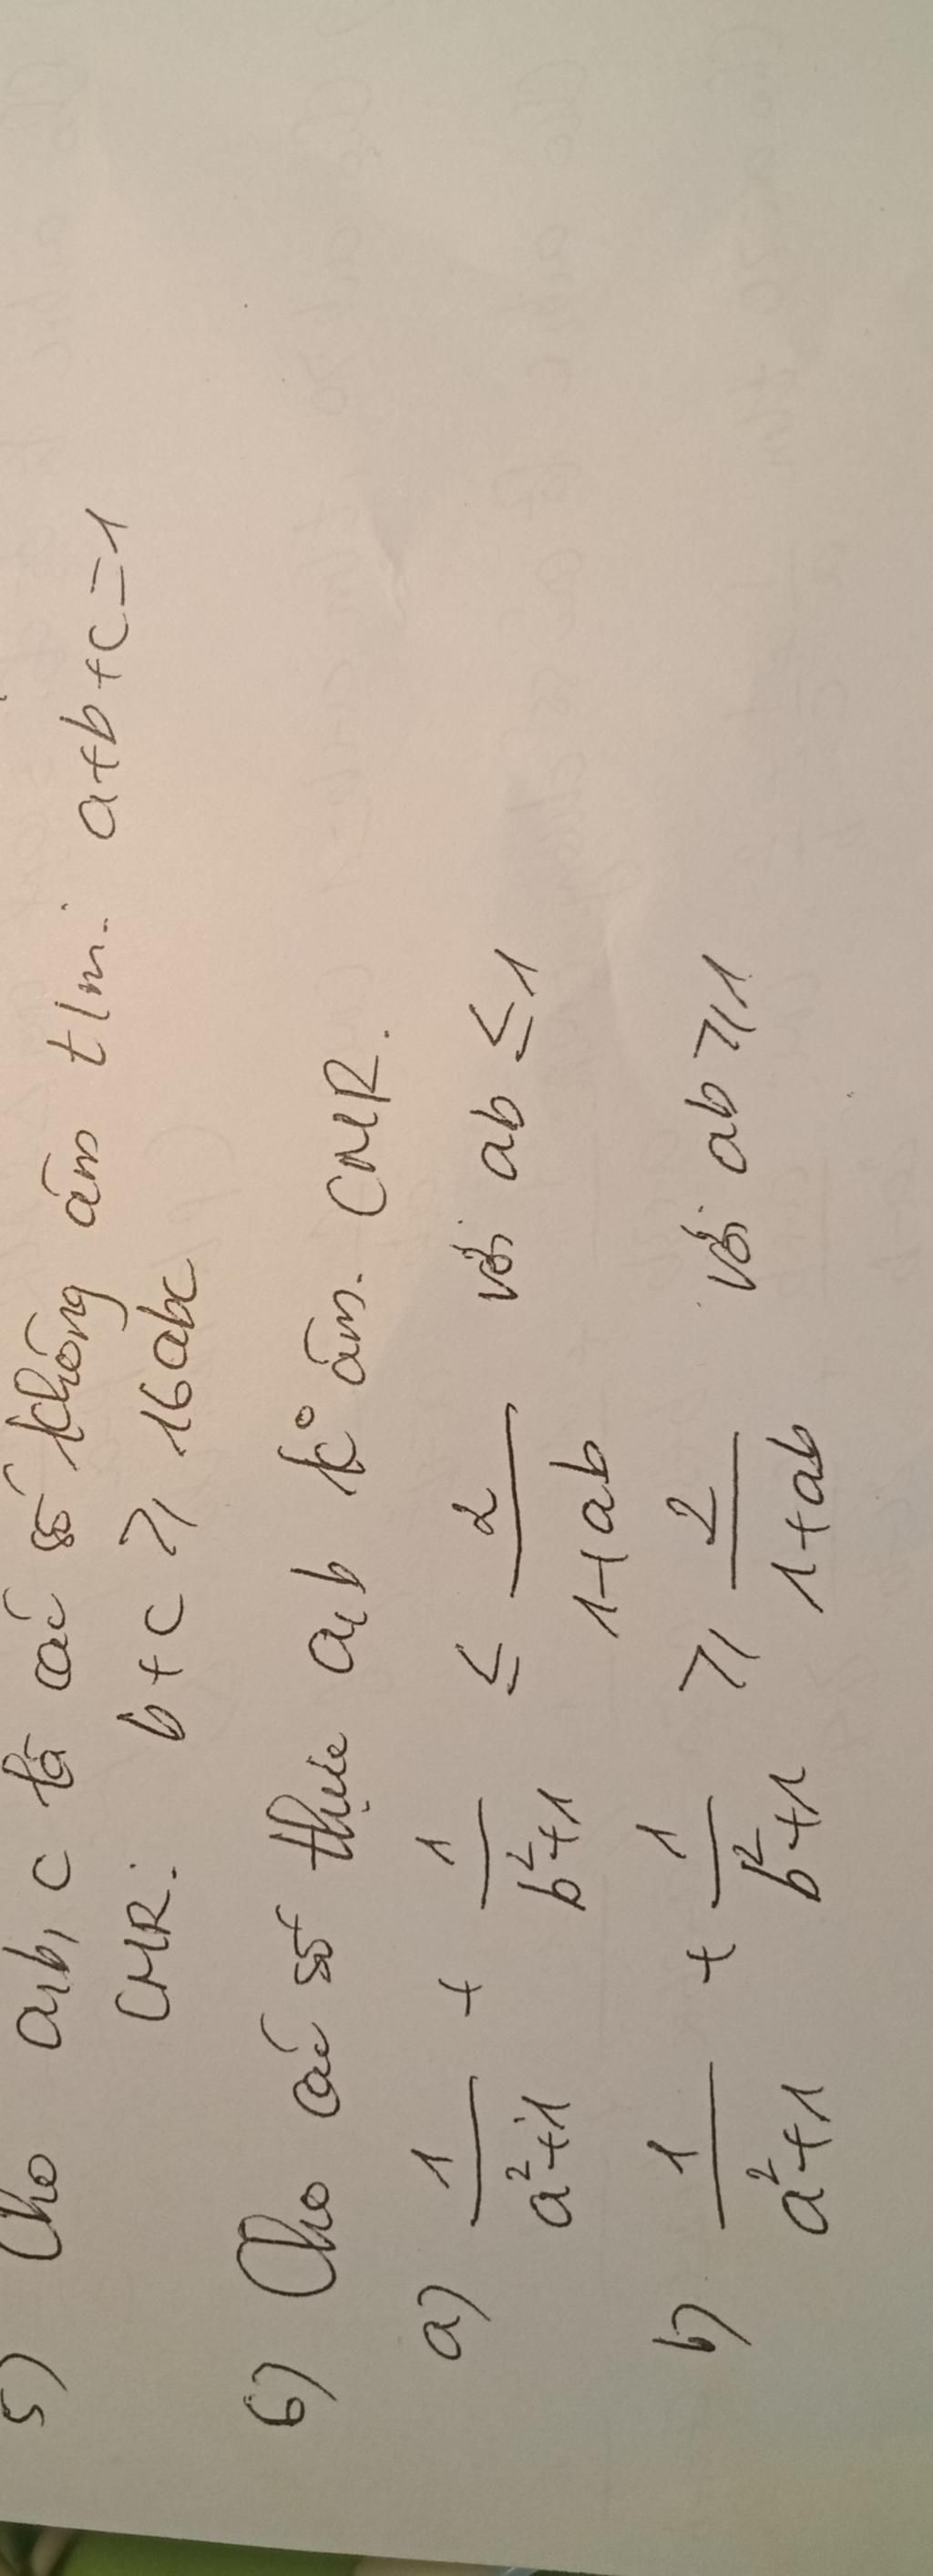 5) Cho a,b,c là các số không âm t/m: a+b+c=1
CMR: b+c ≥ 16abc
6) Cho các số thực a,b k° âm. CMR.
a) 1/(a²+1) + 1/(b²+1) ≤ 2/(1+ab) với ab ≤ 1
b) 1/(a²+1) + 1/(b²+1) ≥ 2/(1+ab) với ab ≥ 1